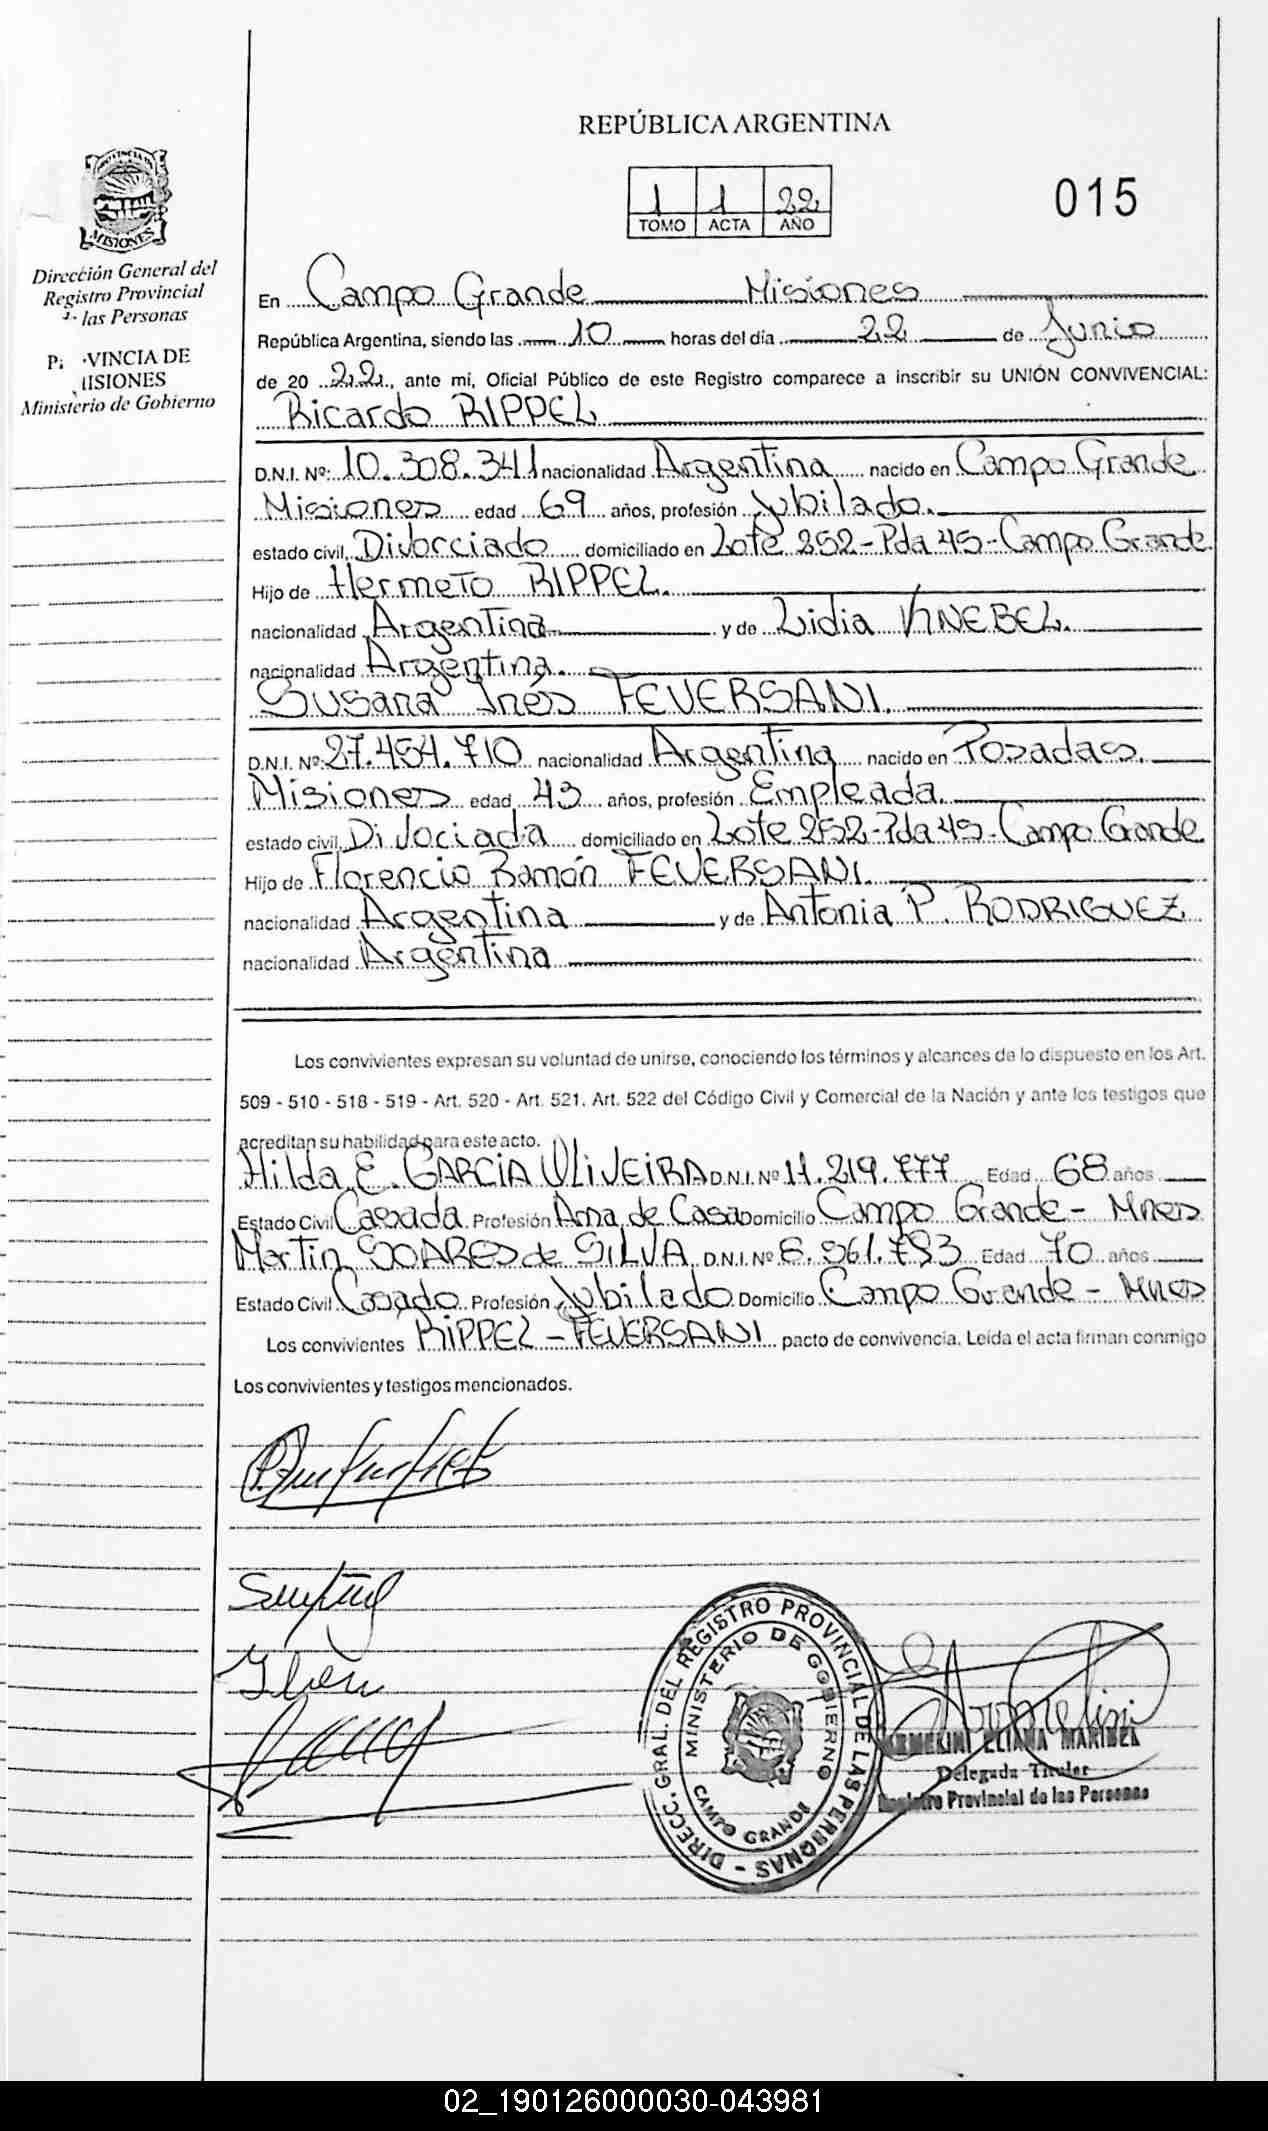 REPÚBLICA ARGENTINA
1 1 22
TOMO ACTA AÑO
015
MISIONES
Dirección General del
Registro Provincial
las Personas
VINCIA DE
MISIONES
Ministerio de Gobierno
En Campo Grande Misiones
República Argentina, siendo las 10 horas del día 22 de Junio
de 20 22, ante mi, Oficial Público de este Registro comparece a inscribir su UNIÓN CONVIVENCIAL:
Ricardo RIPPEL
D.N.I. Nº: 10.308.341 nacionalidad Argentina nacido en Campo Grande
Misiones edad 69 años, profesión Jubilado.
estado civil, Divorciado domiciliado en Lote 252-Pda 45-Campo Grande
Hijo de Hermeto RIPPEL.
nacionalidad Argentina y de Lidia KNEBEL.
nacionalidad Argentina.
Susana Inés FEVERSANI.
D.N.I. Nº: 27.454.710 nacionalidad Argentina nacido en Posadas.
Misiones edad 43 años, profesión Empleada.
estado civil, Divociada domiciliado en Lote 252-Pda 45-Campo Grande
Hijo de Florencio Ramón FEVERSANI.
nacionalidad Argentina y de Antonia P. RODRIGUEZ
nacionalidad Argentina
Los convivientes expresan su voluntad de unirse, conociendo los términos y alcances de lo dispuesto en los Art.
509 - 510 - 518 - 519 - Art. 520 - Art. 521. Art. 522 del Código Civil y Comercial de la Nación y ante los testigos que
acreditan su habilidad para este acto.
Hilda E. GARCIA OLIVEIRA D.N.I. Nº 11.219.777 Edad 68 años
Estado Civil Casada Profesión Ama de Casa Domicilio Campo Grande - Mnes
Martin SOARES de SILVA D.N.I. Nº 8.561.753 Edad 70 años
Estado Civil Casado Profesión Jubilado Domicilio Campo Grande - Mnes
Los convivientes RIPPEL - FEVERSANI pacto de convivencia. Leída el acta firman conmigo
Los convivientes y testigos mencionados.
DIRECC. GRAL. DEL REGISTRO PROVINCIAL DE LAS PERSONAS -
MINISTERIO DE GOBIERNO
CAMPO GRANDE
ELIANA MARIBEL
Delegada Titular
Registro Provincial de las Personas
02_190126000030-043981